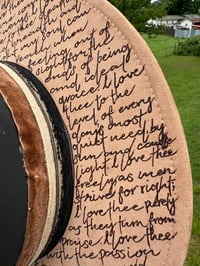 when
feeling out of
ends of being
and ideal
grace. I love
thee to the
level of every
days most
quiet need by
sun and candle
light I love thee
freely as men
strive for right;
I love thee purely
as they turn from
praise. I love thee
with the passion